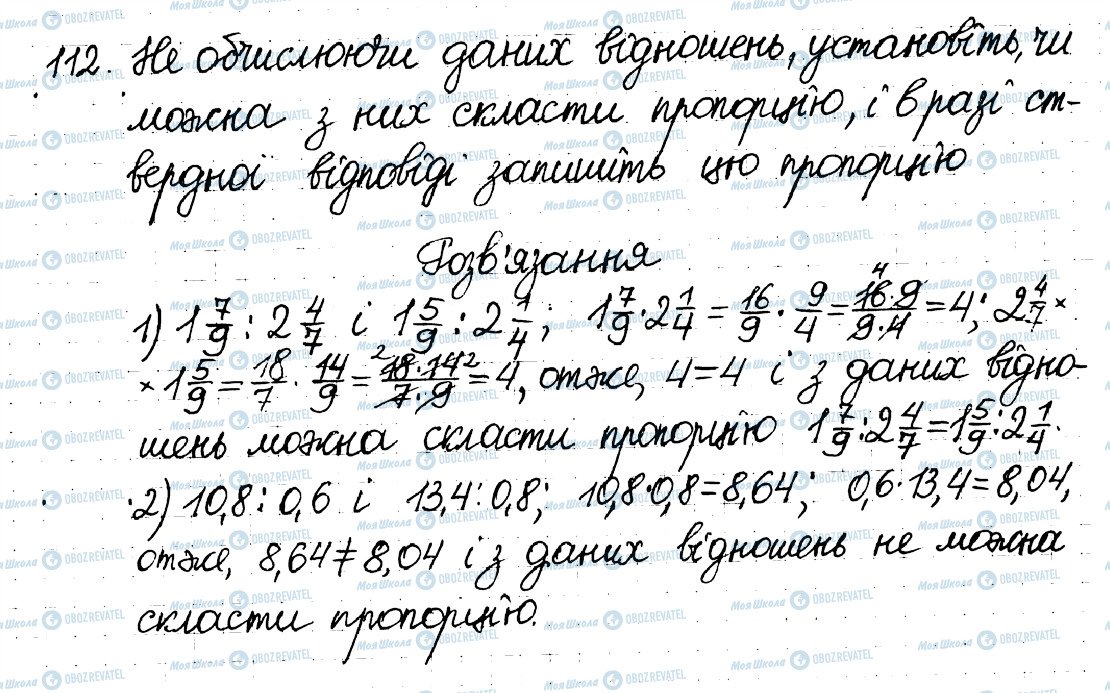 112. Не обчислюючи даних відношень, установіть, чи
можна з них скласти пропорцію, і в разі ст-
вердної відповіді запишіть цю пропорцію
Розв'язання
1) 1 7/9 : 2 4/7 і 1 5/9 : 2 1/4; 1 7/9 · 2 1/4 = 16/9 · 9/4 = 16·9/9·4 = 4; 2 4/7 ×
× 1 5/9 = 18/7 · 14/9 = 18·14/7·9 = 4, отже, 4=4 і з даних відно-
шень можна скласти пропорцію 1 7/9 : 2 4/7 = 1 5/9 : 2 1/4.
2) 10,8 : 0,6 і 13,4 : 0,8; 10,8·0,8=8,64; 0,6·13,4=8,04,
отже, 8,64≠8,04 і з даних відношень не можна
скласти пропорцію.